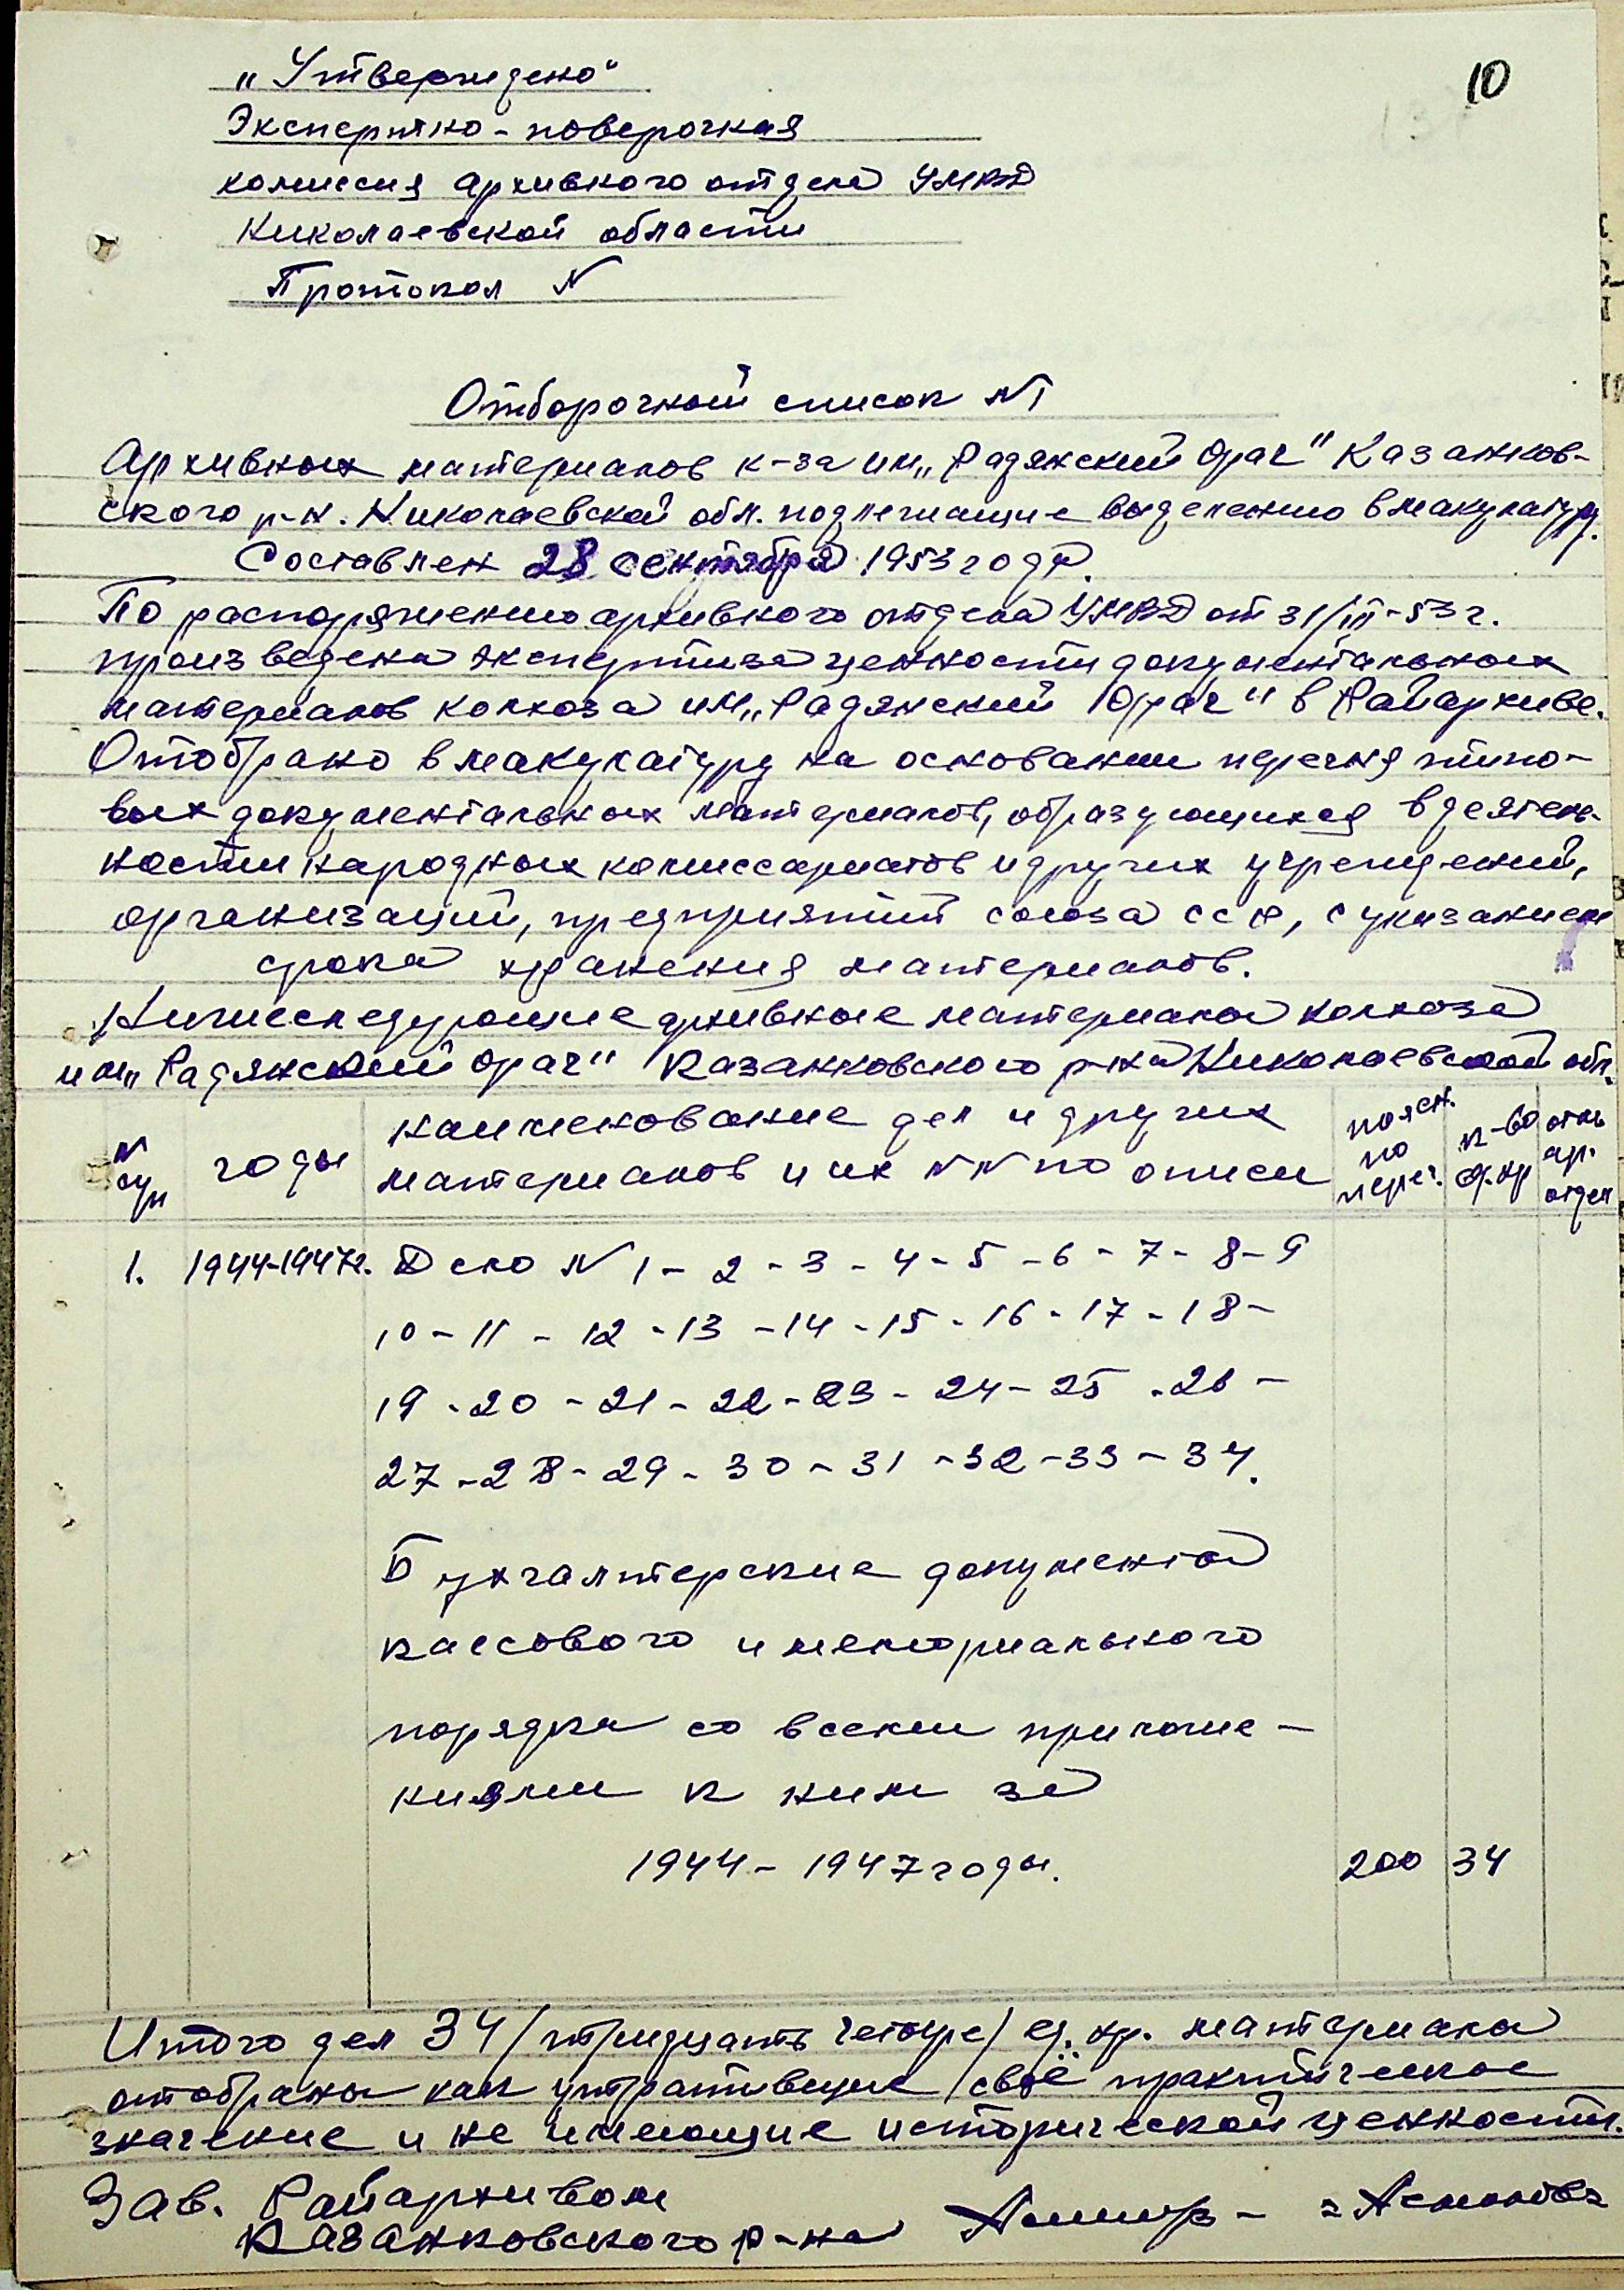 10
„Утверждено“
Экспертно-поверочная
комиссия архивного отдела УМВД
Николаевской области
Протокол №
Отборочный список №1
Архивных материалов к-за им„Радянский Орач" Казанков-
ского р-н. Николаевской обл. подлежащие выделению в макулатуру.
Составлен 28 сентября 1953 года.
По распоряжению архивного отдела УМВД от 31/III-53 г.
произведена экспертиза ценности документальных
материалов колхоза им„Радянский Орач" в Райархиве.
Отобрано в макулатуру на основании перечня типо-
вых документальных материалов, образующихся в деятель-
ности народных комиссариатов и других учреждений,
организаций, предприятий союза ССР, с указанием
срока хранения материалов.
Нижеследующие архивные материалы колхоза
им„Радянский Орач" Казанковского р-на Николаевской обл.
№ годы наименование дел и других материалов и их №№ по описи
по переч. к-во ед.хр ар. отдел
1. 1944-1947г. Дело № 1 - 2 - 3 - 4 - 5 - 6 - 7 - 8 - 9
10 - 11 - 12 - 13 - 14 - 15 - 16 - 17 - 18 -
19 - 20 - 21 - 22 - 23 - 24 - 25 - 26 -
27 - 28 - 29 - 30 - 31 - 32 - 33 - 34.
Бухгалтерские документы
кассового и мемориального
порядка со всеми приложе-
ниями к ним за
1944 - 1947 годы. 200 34
Итого дел 34 /тридцать четыре/ ед. хр. материала
отобраны как утратившие своё практическое
значение и не имеющие исторической ценности.
Зав. Райархивом
Казанковского р-на